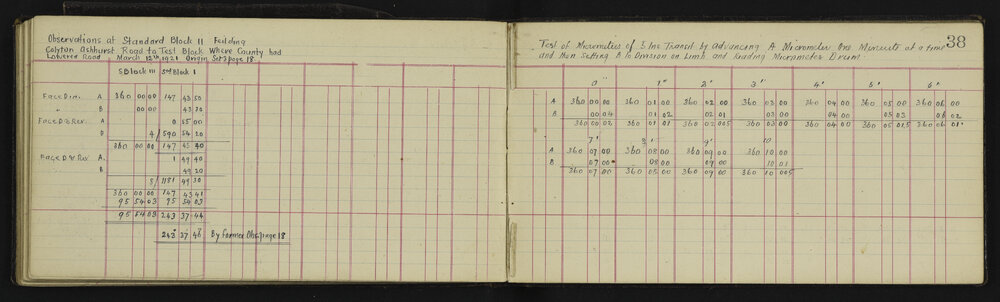 Observations at Standard Block II Feilding
Colyton Ashhurst Road to Test Block Where County had
Lowered Road March 12th 1921 Origin Set 3 page 18
S Block III Std Block I
Face Dir. A 360 00 00 147 43 50
" B 00 00 43 70
Face D & Rev A 0 55 00
B 4/ 590 54 20
360 00 00 147 45 40
Face D & Rev A. 1 49 20
" B 49 20
8/ 1181 49 30
360 00 00 147 43 41
95 54 03 95 54 03
95 54 03 243 37 44
243° 37 48 By former Obs. page 18
38
Test of Micrometers of 5 Inc Transit by Advancing A Micrometer One Minute at a time
and then Setting B to Division on Limb and Reading Micrometer Drum
0' 1' 2' 3' 4' 5' 6'
A 360 00 00 360 01 00 360 02 00 360 03 00 360 04 00 360 05 00 360 06 00
B 00 04 01 02 02 01 03 00 04 00 05 03 06 02
360 00 02 360 01 01 360 02 005 360 03 00 360 04 00 360 05 015 360 06 01
7' 8' 9' 10
A 360 07 00 360 08 00 360 09 00 360 10 00
B 07 00 08 00 09 00 10 01
360 07 00 360 08 00 360 09 00 360 10 005